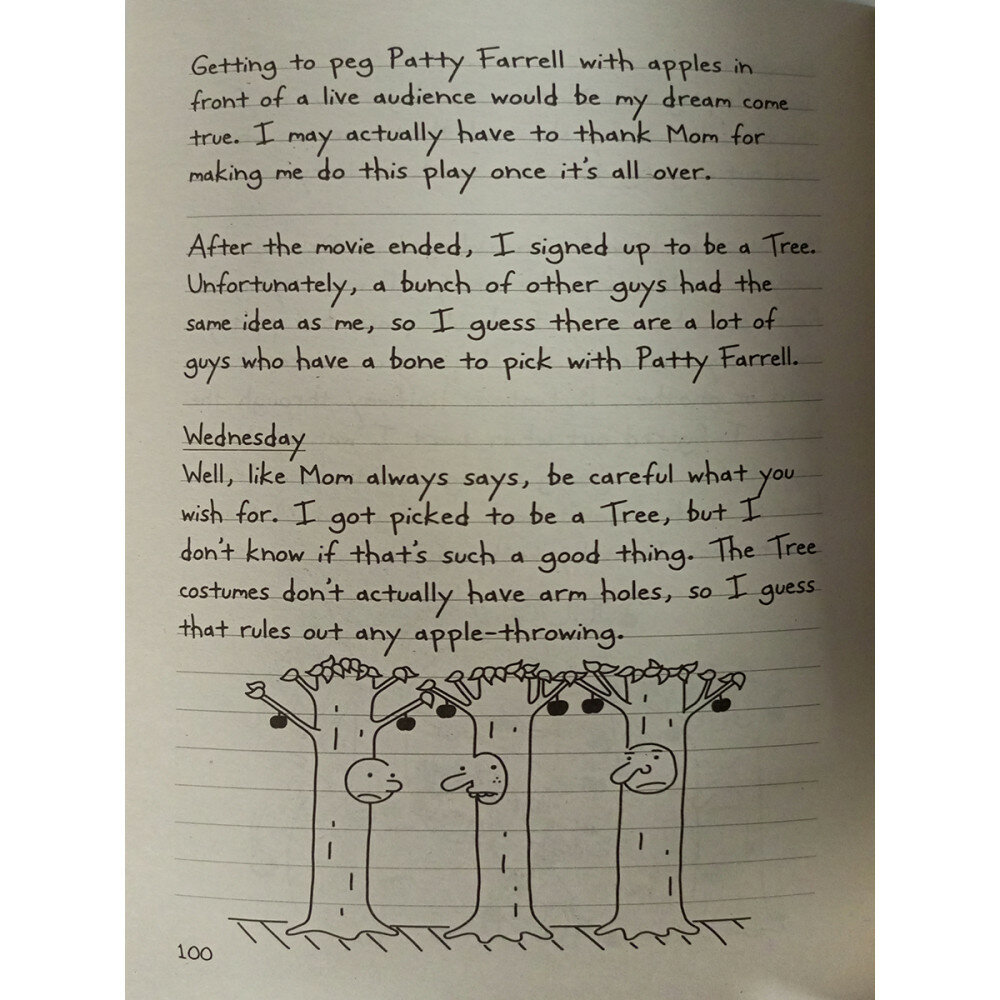 Getting to peg Patty Farrell with apples in
front of a live audience would be my dream come
true. I may actually have to thank Mom for
making me do this play once it's all over.
After the movie ended, I signed up to be a Tree.
Unfortunately, a bunch of other guys had the
same idea as me, so I guess there are a lot of
guys who have a bone to pick with Patty Farrell.
Wednesday
Well, like Mom always says, be careful what you
wish for. I got picked to be a Tree, but I
don't know if that's such a good thing. The Tree
costumes don't actually have arm holes, so I guess
that rules out any apple-throwing.
100